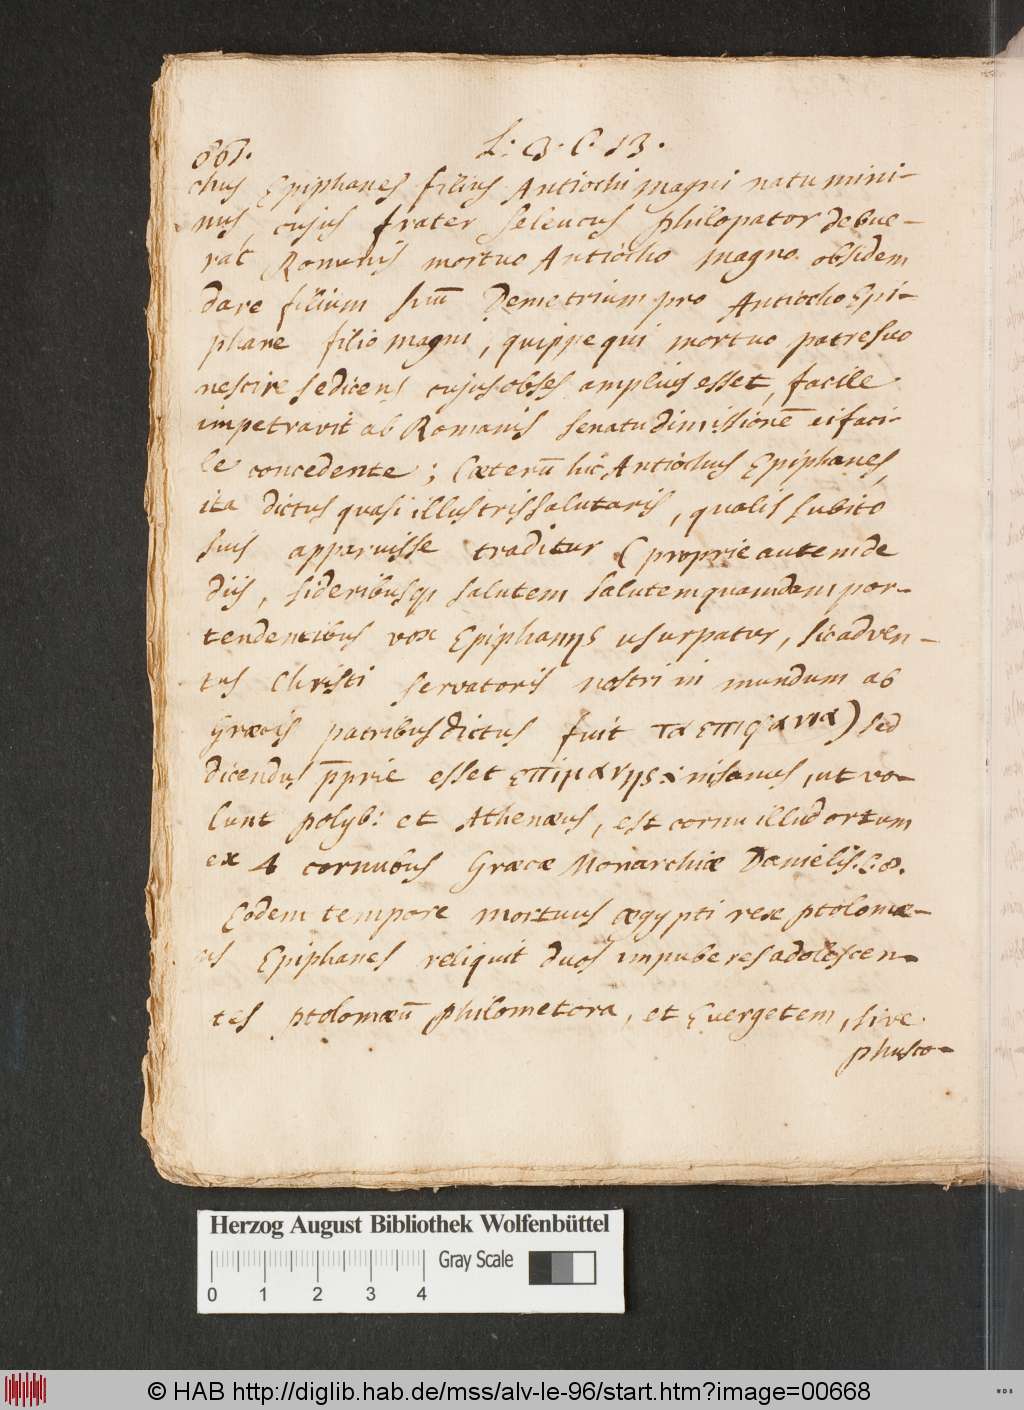 661. L: 3. C. 13.
chus Epiphanes filius Antiochi magni natu mini-
mus, cujus frater Seleucus philopator debue-
rat Romanis mortuo Antiocho magno obsidem
dare filium suū Demetrium pro Antiocho Epi-
phane filio magni, quippe qui mortuo patre suo
nescire se dicens cujus obses amplius esset, facile
impetravit ab Romanis senatu dimissionē ei faci-
le concedente; Cæterū hic Antiochus Epiphanes,
ita dictus quasi illustris salutaris, qualis subito
suis apparuisse traditur (proprie autem de
diis, sideribusq salutem salutem quamdam por-
tendentibus vox Epiphanηs usurpatur, sic adven-
tus Christi servatoris nostri in mundum ab
Græcis patribus dictus fuit τα επιφανια) sed
dicendus p̄prie esset επιμανης: insanus, ut vo-
lunt polyb: et Athenæus, est cornu illud ortum
ex 4 cornubus Græcæ Monarchiæ Danielis. C. 8.
Eodem tempore mortuus ægypti rex ptolomæ-
us Epiphanes reliquit duos impuberes adolescen-
tes ptolomæū philometora, et Evergetem, sive
phisco-
Herzog August Bibliothek Wolfenbüttel
Gray Scale
0 1 2 3 4
© HAB http://diglib.hab.de/mss/alv-le-96/start.htm?image=00668